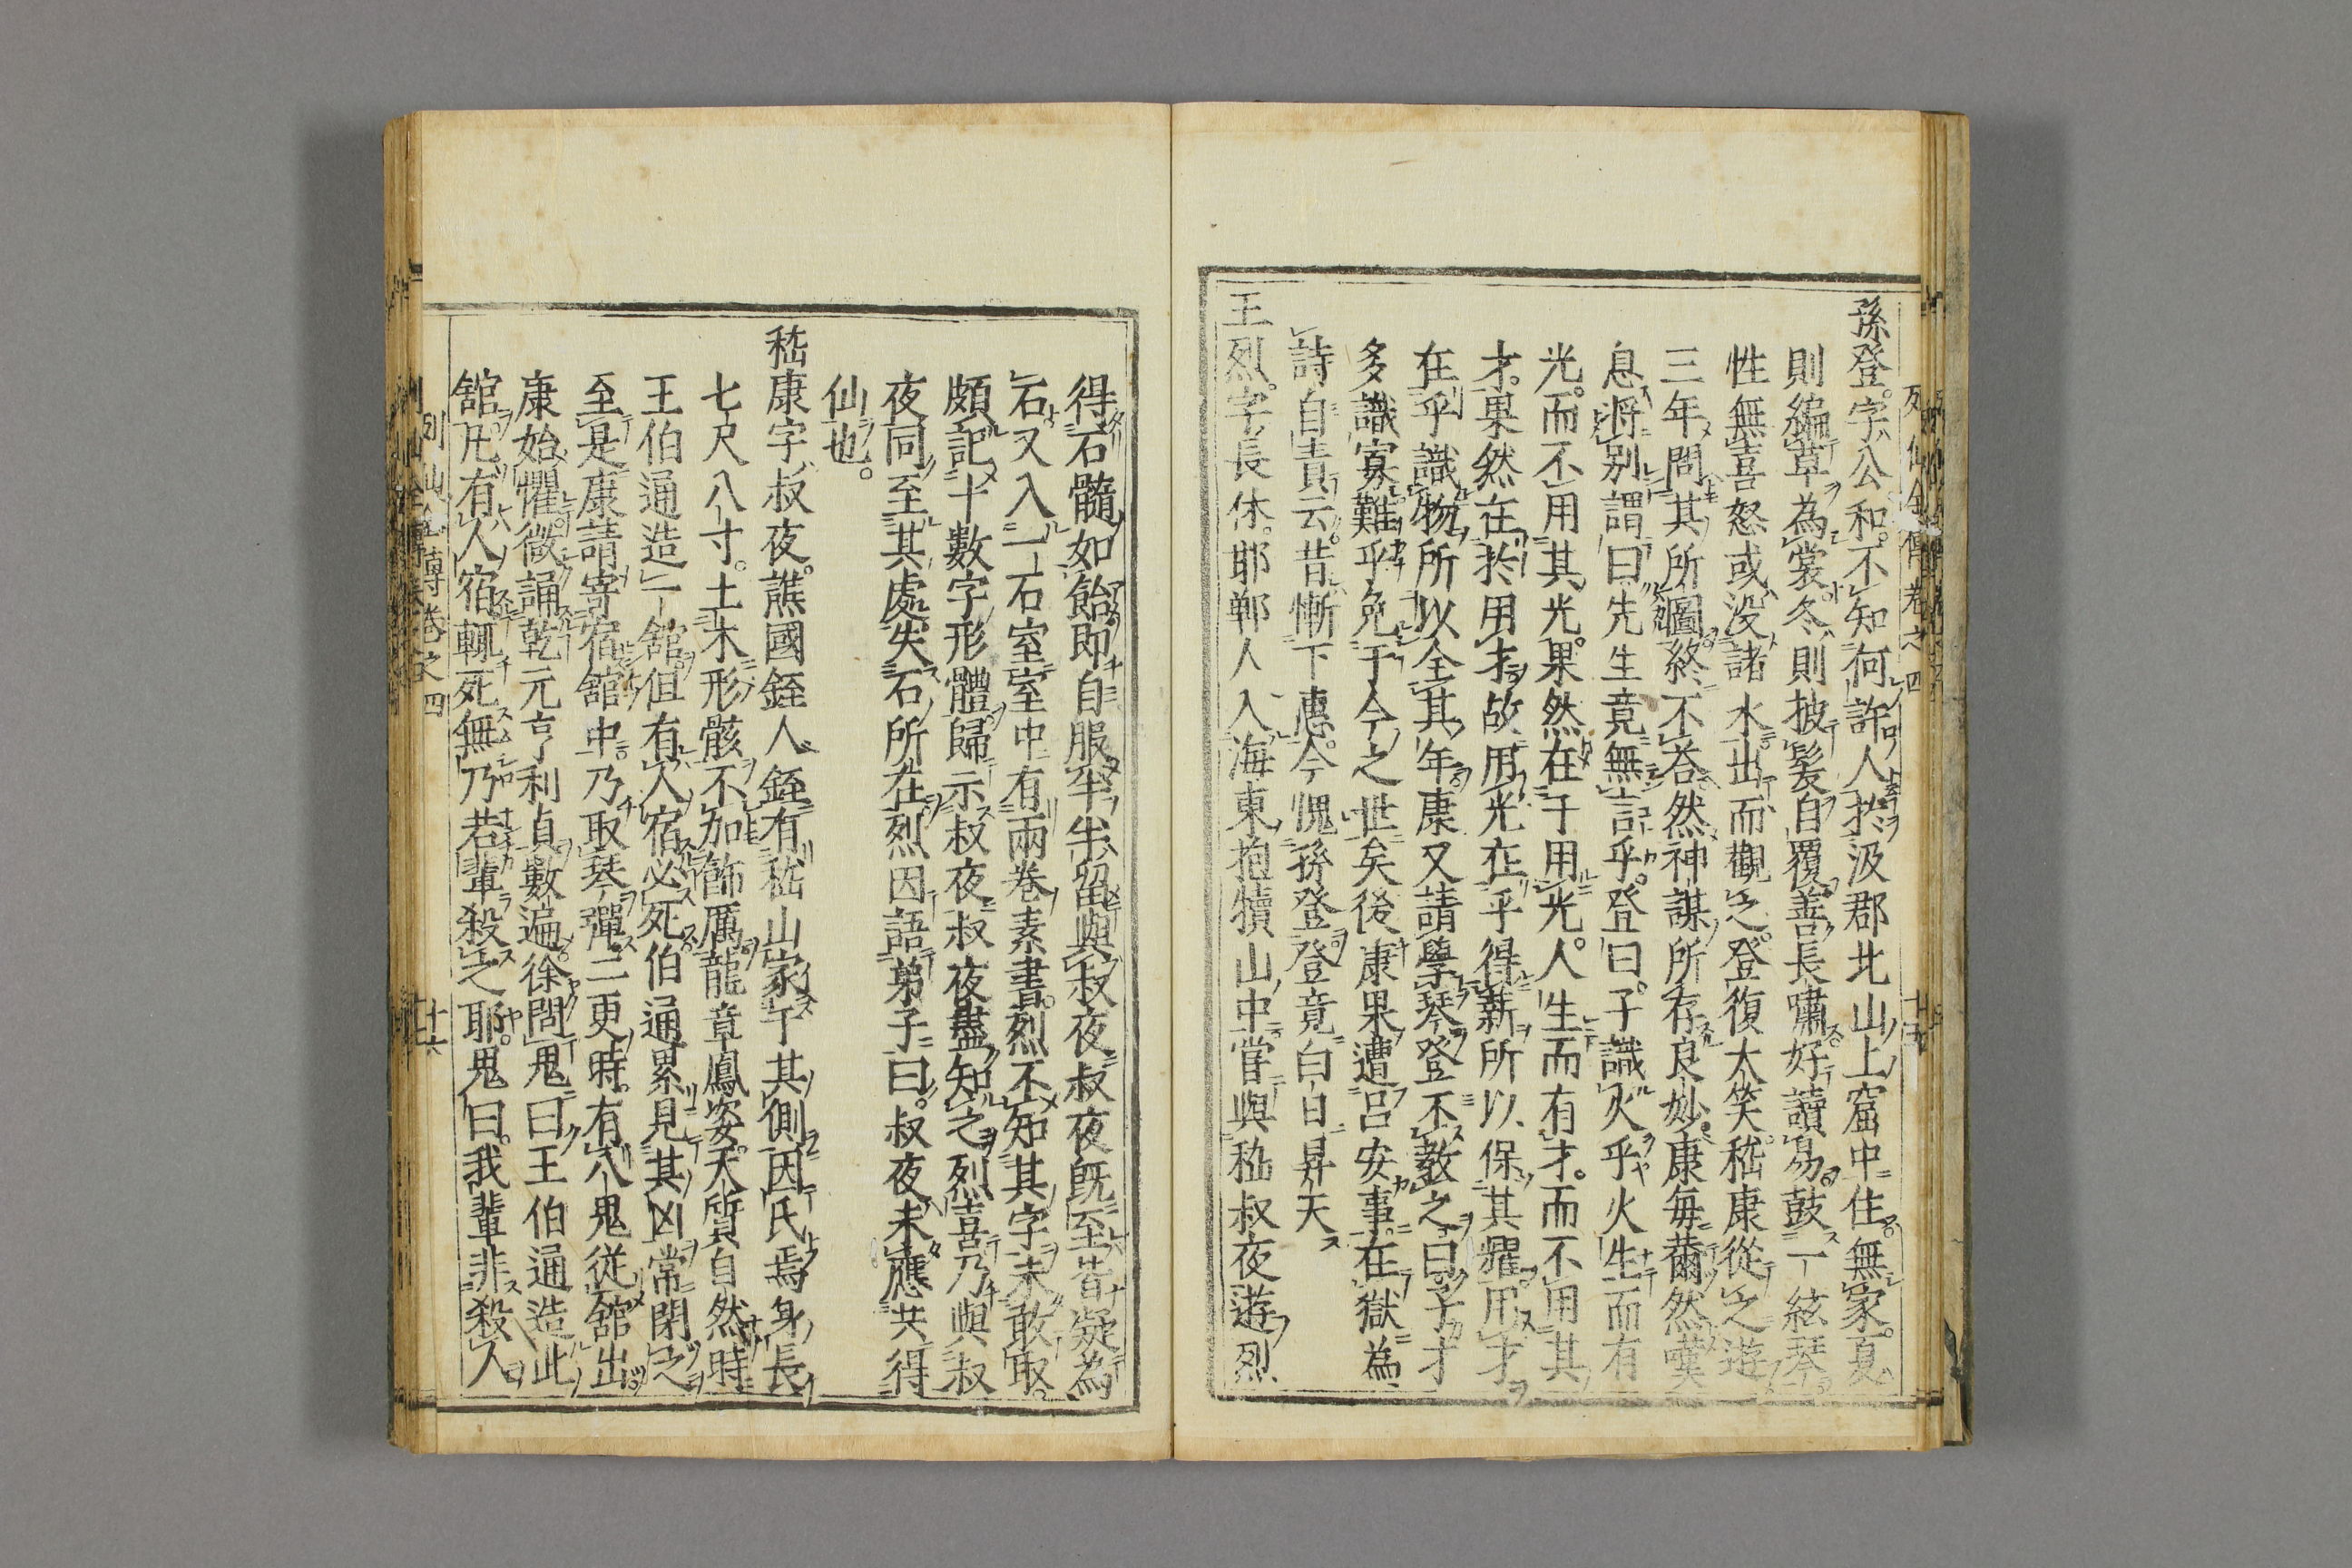 孫登。字公和。不知何許人於汲郡北山上窟中住。無家。夏
則編草為裳。冬則披髮自覆。善長嘯。好讀易。鼓一絃琴。
性無喜怒或没諸水出而觀之。登復大笑。嵇康從之遊
三年。問其所圖。終不荅。然神謀所存良妙。康每薾然嘆
息。將別謂曰。先生竟無言乎。登曰。子識火乎火生而有
光。而不用其光。果然在于用光。人生而有才。而不用其
才。果然在於用才。故用光在乎得薪。所以保其耀。用才
在乎識物。所以全其年。康又請學琴。登不教之曰。子才
多識寡。難乎免于今之世矣後康果遭呂安事。在獄為
詩自責云。昔慚下惠。今愧孫登。登竟白日昇天
王烈。字長休。邯鄲人入海東抱犢山中。嘗與嵇叔夜遊。烈
得石髓如飴即自服半。半留與叔夜。叔夜既至皆凝為
石。又入一石室室中有兩卷素書。烈不知其字未敢取。
頗記十數字形體歸示叔夜叔夜盡知之。烈喜乃與叔
夜同至其處。失石所在烈因語弟子曰。叔夜未應共得
仙也。
嵇康字叔夜。譙國銍人。銍有嵇山家于其側因氏焉身長
七尺八寸。土木形骸不加飾厲。龍章鳳姿。天質自然。時
王伯通造一舘。但有人宿必死。伯通累見其凶常閉之
至是康請寄宿舘中。乃取琴彈。二更時。有八鬼從舘出
康始懼。微誦乾元亨利貞數遍。徐問鬼曰王伯通造此
舘。凡有人宿輒死。無乃若輩殺之耶。鬼曰。我輩非殺人
列仙全傳卷之四
十六